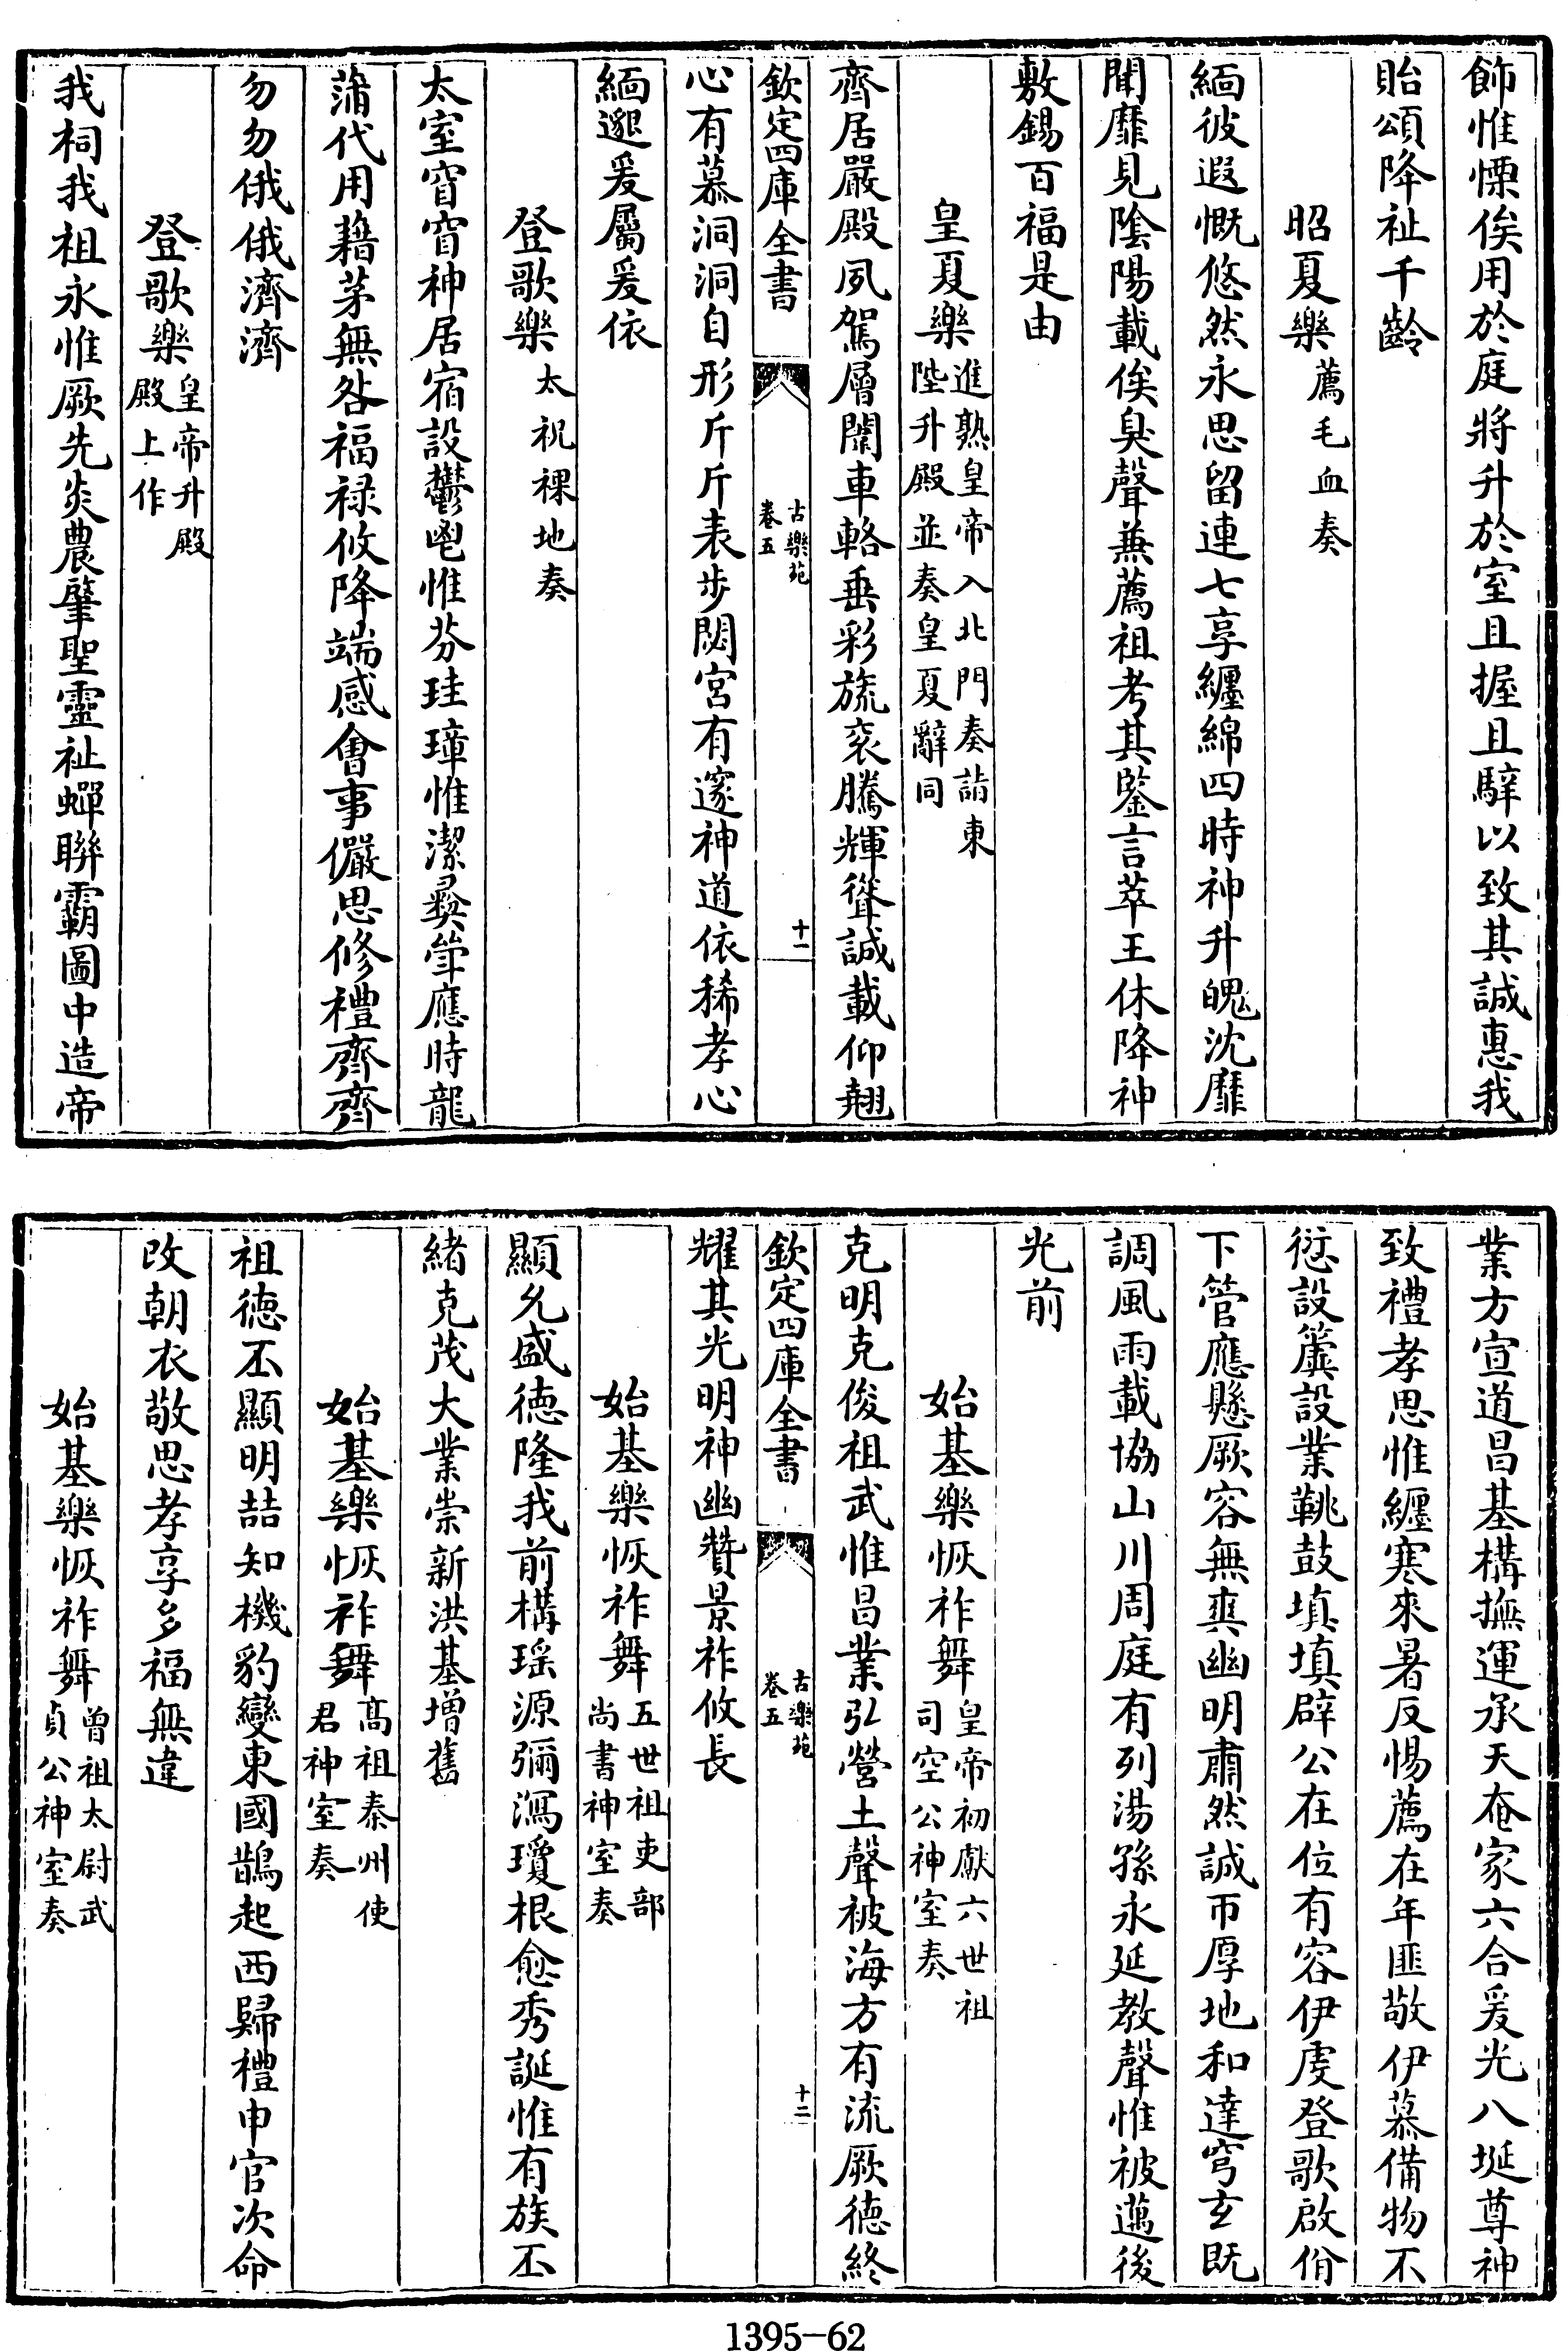 飾惟慄俟用於庭將升於室且握且騂以致其誠惠我
貽頌降祉千齡
昭夏樂薦毛血奏
緬彼遐慨悠然永思留連七享纏綿四時神升魄沈靡
聞靡見陰陽載俟臭聲兼薦祖考其鑒言萃王休降神
敷錫百福是由
皇夏樂進熟皇帝入北門奏詣東
陛升殿並奏皇夏辭同
齊居嚴殿夙駕層闈車輅垂彩旒衮騰輝聳誠載仰翹
欽定四庫全書
古樂苑
卷五
十一
心有慕洞洞自形斤斤表步閟宮有邃神道依稀孝心
緬邈爰屬爰依
登歌樂太祝祼地奏
太室窅窅神居宿設鬱鬯惟芬珪璋惟潔彞斝應時龍
蒲代用藉茅無咎福祿攸降端感會事儼思修禮齊齊
勿勿俄俄濟濟
登歌樂皇帝升殿
殿上作
我祠我祖永惟厥先炎農肇聖靈祉蟬聯霸圖中造帝
業方宣道昌基構撫運承天奄家六合爰光八埏尊神
致禮孝思惟纏寒來暑反惕薦在年匪敬伊慕備物不
愆設簴設業鞉鼓填填辟公在位有容伊虔登歌啟佾
下管應懸厥容無爽幽明肅然誠帀厚地和達穹玄既
調風雨載協山川周庭有列湯孫永延教聲惟被邁後
光前
始基樂恢祚舞皇帝初獻六世祖
司空公神室奏
克明克俊祖武惟昌業弘營土聲被海方有流厥德終
欽定四庫全書
古樂苑
卷五
十二
耀其光明神幽贊景祚攸長
始基樂恢祚舞五世祖吏部
尚書神室奏
顯允盛德隆我前構瑶源彌瀉瓊根愈秀誕惟有族丕
緒克茂大業崇新洪基增舊
始基樂恢祚舞髙祖秦州使
君神室奏
祖德丕顯明喆知機豹變東國鵲起西歸禮申官次命
改朝衣敬思孝享多福無違
始基樂恢祚舞曾祖太尉武
貞公神室奏
1395-62